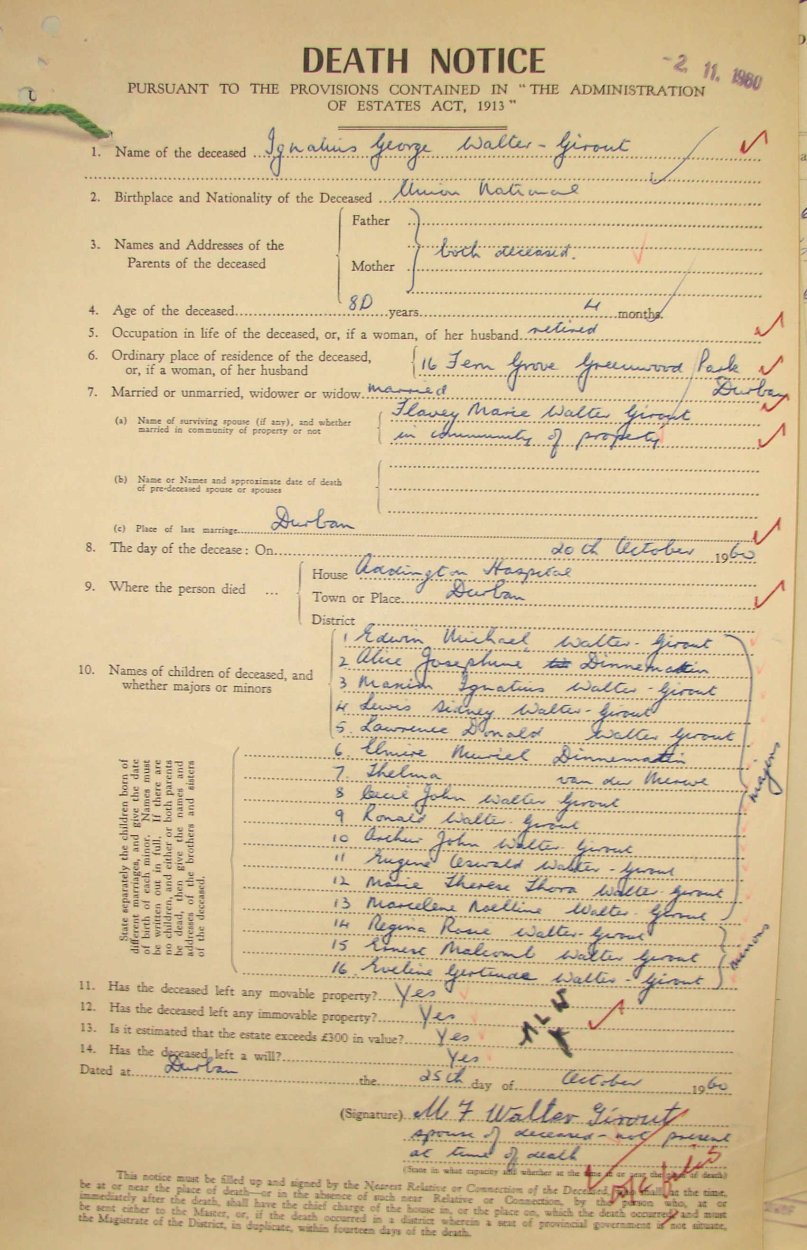 DEATH NOTICE
-2. 11. 1960
PURSUANT TO THE PROVISIONS CONTAINED IN "THE ADMINISTRATION
OF ESTATES ACT, 1913"
1. Name of the deceased Ignatius George Walter-Girout
2. Birthplace and Nationality of the Deceased Union National
3. Names and Addresses of the Parents of the deceased
Father
Mother
both deceased.
4. Age of the deceased 80 years 4 months
5. Occupation in life of the deceased, or, if a woman, of her husband retired
6. Ordinary place of residence of the deceased,
or, if a woman, of her husband
16 Fern Grove Greenwood Park
Durban
7. Married or unmarried, widower or widow married
(a) Name of surviving spouse (if any), and whether
married in community of property or not
Flavey Marie Walter Girout
in community of property
(b) Name or Names and approximate date of death
of pre-deceased spouse or spouses
(c) Place of last marriage Durban
8. The day of the decease: On 20th October 1960
9. Where the person died ...
House Addington Hospital
Town or Place Durban
District
10. Names of children of deceased, and
whether majors or minors
1 Edwin Michael Walter-Girout
2 Alice Josephine Dinnematin
3 Maxim Ignatius Walter-Girout
4 Lewis Sidney Walter-Girout
5. Lawrence Donald Walter Girout
6. Elmire Muriel Dinnematin
7 Thelma van der Merwe
8 Cecil John Walter Girout
9 Ronald Walter-Girout
10 Arthur John Walter-Girout
11 Eugene Oswald Walter-Girout
12 Marie Therese Thora Walter-Girout
13 Marcelene Noelline Walter-Girout
majors
14 Regina Rosie Walter-Girout
15 Ernest Malcomb Walter Girout
16 Eveline Gertrude Walter-Girout
minors
State separately the children born of
different marriages, and give the date
of birth of each minor. Names must
be written out in full. If there are
no children, and either or both parents
be dead, then give the names and
addresses of the brothers and sisters
of the deceased.
11. Has the deceased left any movable property? Yes
12. Has the deceased left any immovable property? Yes
13. Is it estimated that the estate exceeds £300 in value? Yes
14. Has the deceased left a will? Yes
Dated at Durban the 25th day of October 1960
(Signature) M F Walter Girout
spouse of deceased - not present
at time of death
(State in what capacity and whether at the time in or near the place of death)
This notice must be filled up and signed by the Nearest Relative or Connection of the Deceased, who shall at the time,
be at or near the place of death—or in the absence of such near Relative or Connection, by the person who, at or
immediately after the death, shall have the chief charge of the house in, or the place on, which the death occurred; and must
be sent either to the Master, or, if the death occurred in a district wherein a seat of provincial government is not situate,
the Magistrate of the District, in duplicate, within fourteen days of the death.